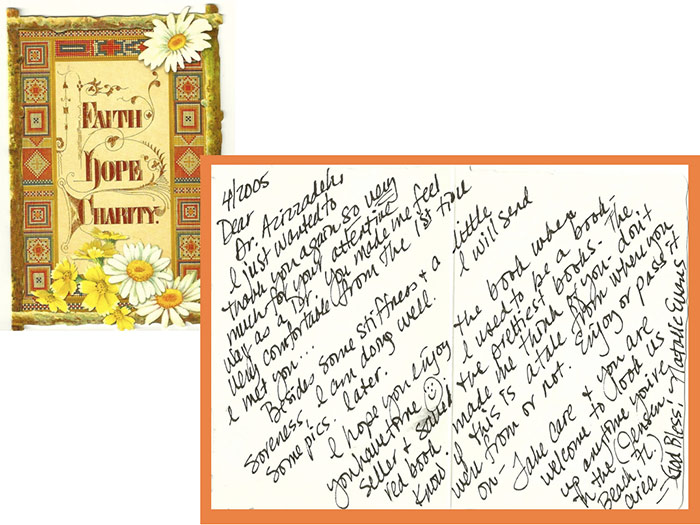 FAITH
HOPE
CHARITY.
4/2005
Dear
Dr. Azizzadeh,
I just wanted to
thank you again so very
much for your attentive
way as a Dr. You made me feel
very comfortable from the 1st time
I met you...
Besides some stiffness & a little
soreness, I am doing well. I will send
some pics. later.
I hope you enjoy the book where
you have time I used to be a book-
seller & saved the prettiest books - The
red book made me think of you - don't
know if this is a tale from where you
were from or not. Enjoy or pass it
on - Take care & you are
welcome to look us
up anytime you're
in the (Jensen
Beach, Fl.)
area
- God Bless,